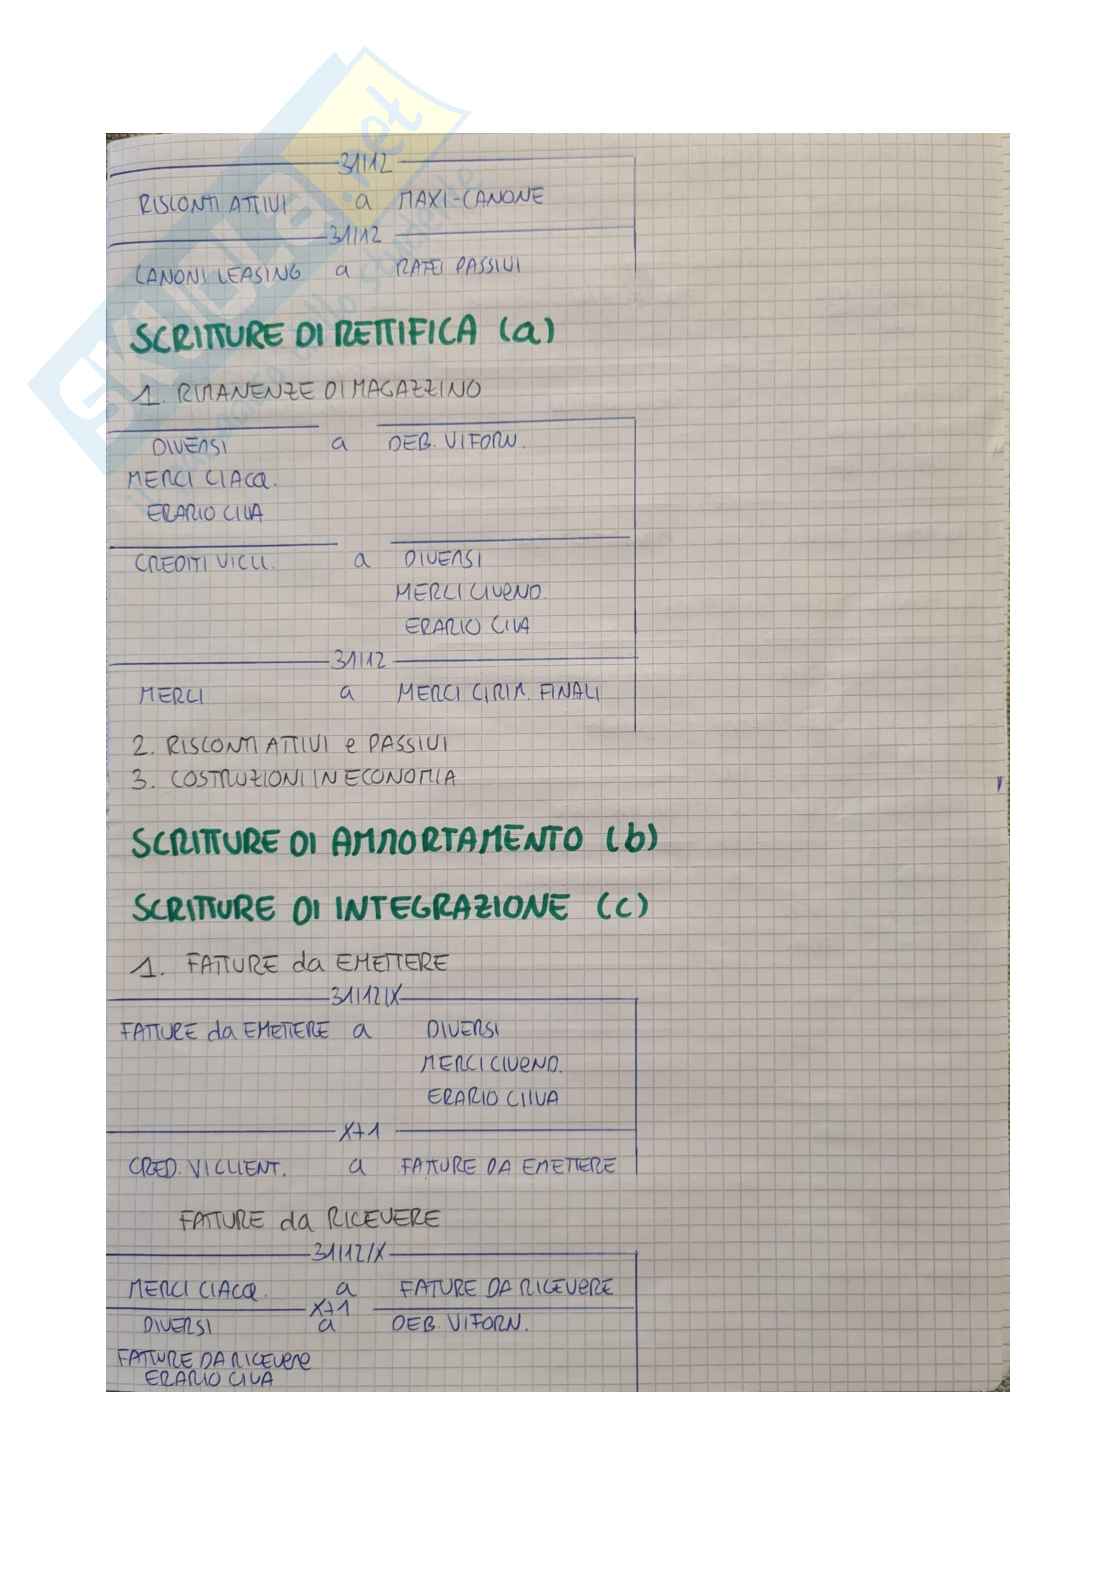 31/12
RISCONTI ATTIVI a MAXI-CANONE
31/12
CANONI LEASING a RATEI PASSIVI
SCRITTURE DI RETTIFICA (a)
1. RIMANENZE DI MAGAZZINO
DIVERSI a DEB. V/FORN.
MERCI C/ACQ.
ERARIO C/IVA
CREDITI V/CLI. a DIVERSI
MERCI C/VEND.
ERARIO C/IVA
31/12
MERCI a MERCI C/RIM. FINALI
2. RISCONTI ATTIVI e PASSIVI
3. COSTRUZIONI IN ECONOMIA
SCRITTURE DI AMMORTAMENTO (b)
SCRITTURE DI INTEGRAZIONE (c)
1. FATTURE da EMETTERE
31/12/X
FATTURE da EMETTERE a DIVERSI
MERCI C/VEND.
ERARIO C/IVA
X+1
CRED. V/CLIENT. a FATTURE DA EMETTERE
FATTURE da RICEVERE
31/12/X
MERCI C/ACQ. a FATTURE DA RICEVERE
X+1
DIVERSI a DEB. V/FORN.
FATTURE DA RICEVERE
ERARIO C/IVA
SKUOLA.net